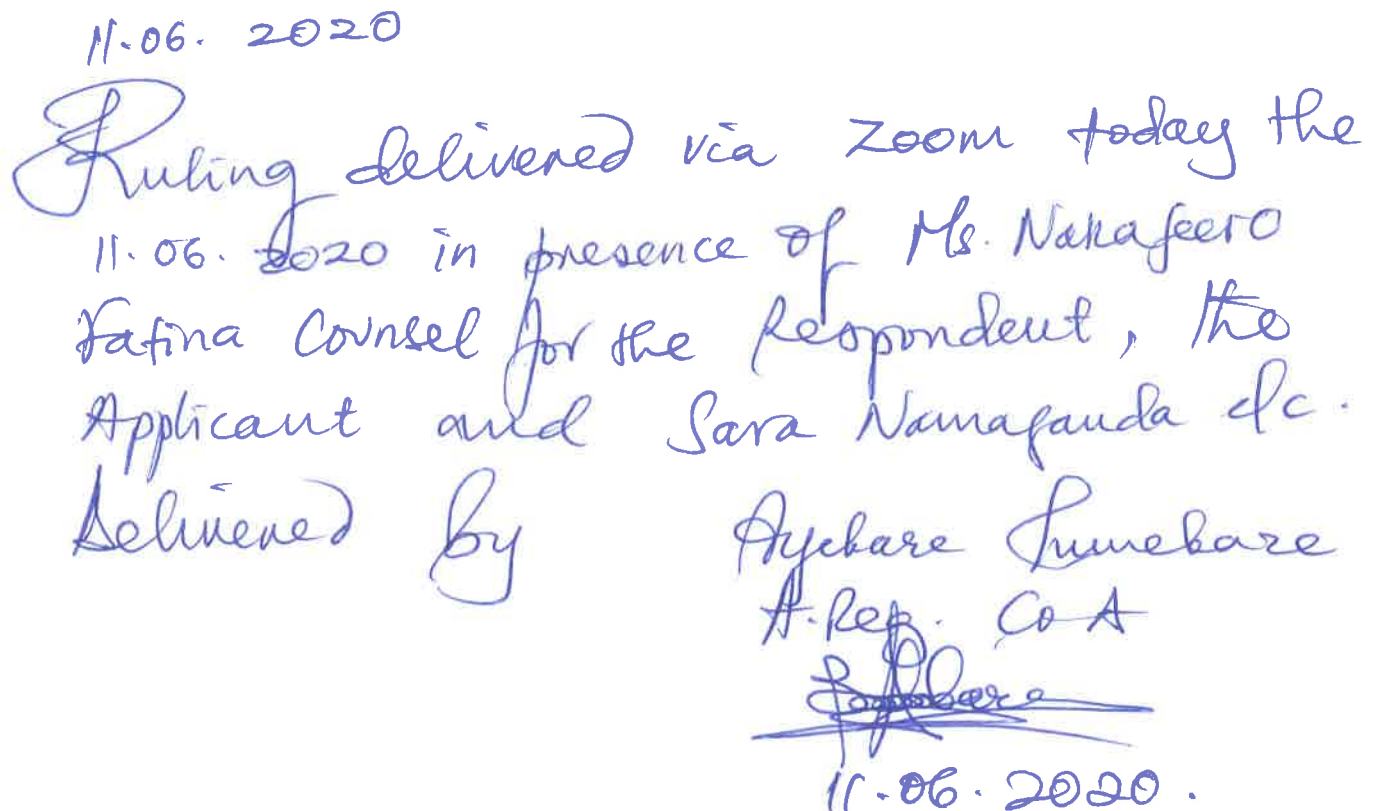 11.06. 2020
Ruling delivered via Zoom today the
11.06. 2020 in presence of Ms. Nakafeero
Fatina Counsel for the Respondent, the
Applicant and Sara Namaganda c/c.
Delivered by Ayebare Tumebare
A.Reg. CoA
11.06.2020.